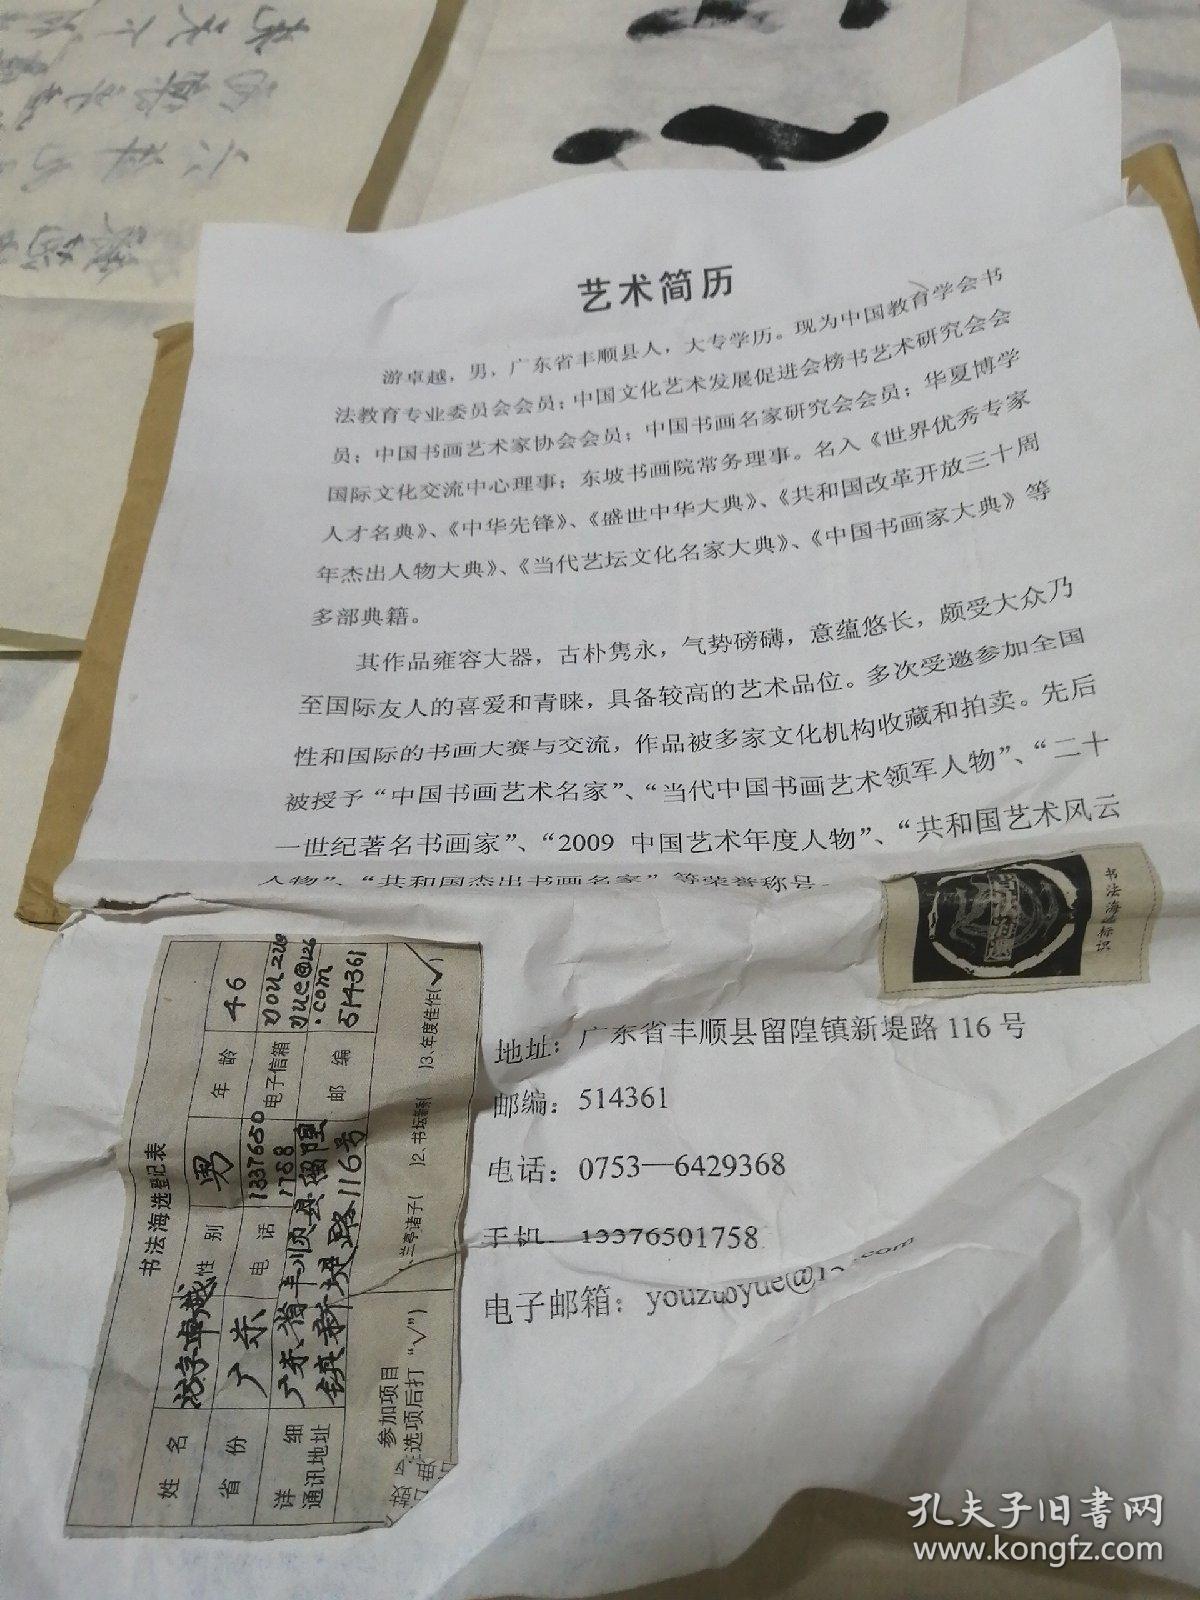 艺术简历
游卓越，男，广东省丰顺县人，大专学历。现为中国教育学会书
法教育专业委员会会员；中国文化艺术发展促进会榜书艺术研究会会
员；中国书画艺术家协会会员；中国书画名家研究会会员；华夏博学
国际文化交流中心理事；东坡书画院常务理事。名入《世界优秀专家
人才名典》、《中华先锋》、《盛世中华大典》、《共和国改革开放三十周
年杰出人物大典》、《当代艺坛文化名家大典》、《中国书画家大典》等
多部典籍。
其作品雍容大器，古朴隽永，气势磅礴，意蕴悠长，颇受大众乃
至国际友人的喜爱和青睐，具备较高的艺术品位。多次受邀参加全国
性和国际的书画大赛与交流，作品被多家文化机构收藏和拍卖。先后
被授予“中国书画艺术名家”、“当代中国书画艺术领军人物”、“二十
一世纪著名书画家”、“2009 中国艺术年度人物”、“共和国艺术风云
人物”、“共和国杰出书画名家”等荣誉称号。
书法海选标识
地址：广东省丰顺县留隍镇新堤路 116 号
邮编：514361
电话：0753—6429368
手机 13376501758
电子邮箱：youzuoyue@1 .com
书法海选登记表
姓名 游卓越 性别 男 年龄 46
省份 广东 电话 1337650 1788 电子信箱 youzuo yue@126 .com
详细通讯地址 广东省丰顺县留隍镇新堤路116号 邮编 514361
参加项目
选项后打“√”
兰亭诸子( )2、书坛 ( )3、年度佳作(√)
孔夫子旧书网
www.kongfz.com